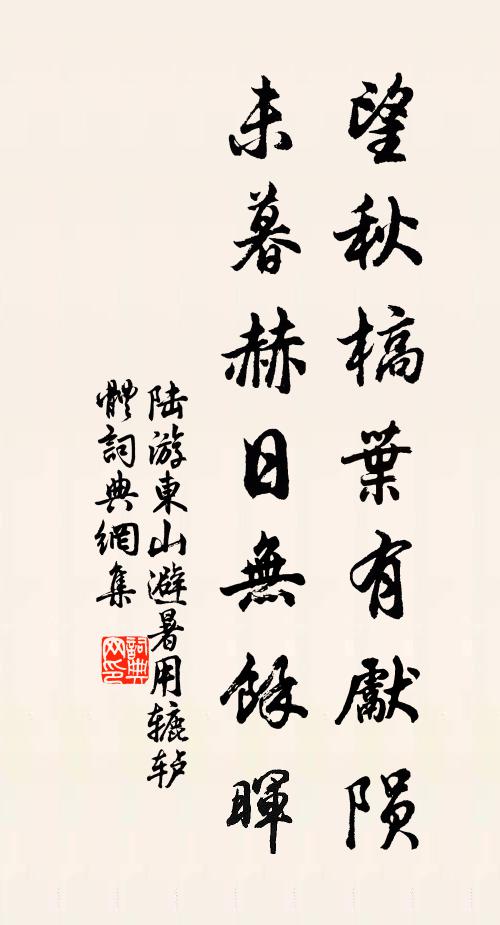 望秋槁葉有獻陨
未暮赫日無餘暉
陆游東山避暑用辘轳
體詞典網集
詞典
网印